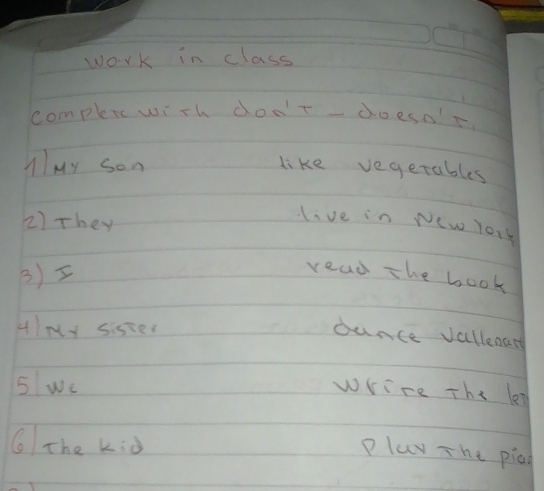 Work in class
complete with don't - doesn't.
1) My son like vegetables
2) They live in New York
3) I read the book
4) My sister dance vallenat
5) We write the let
6) The kid Play the pia